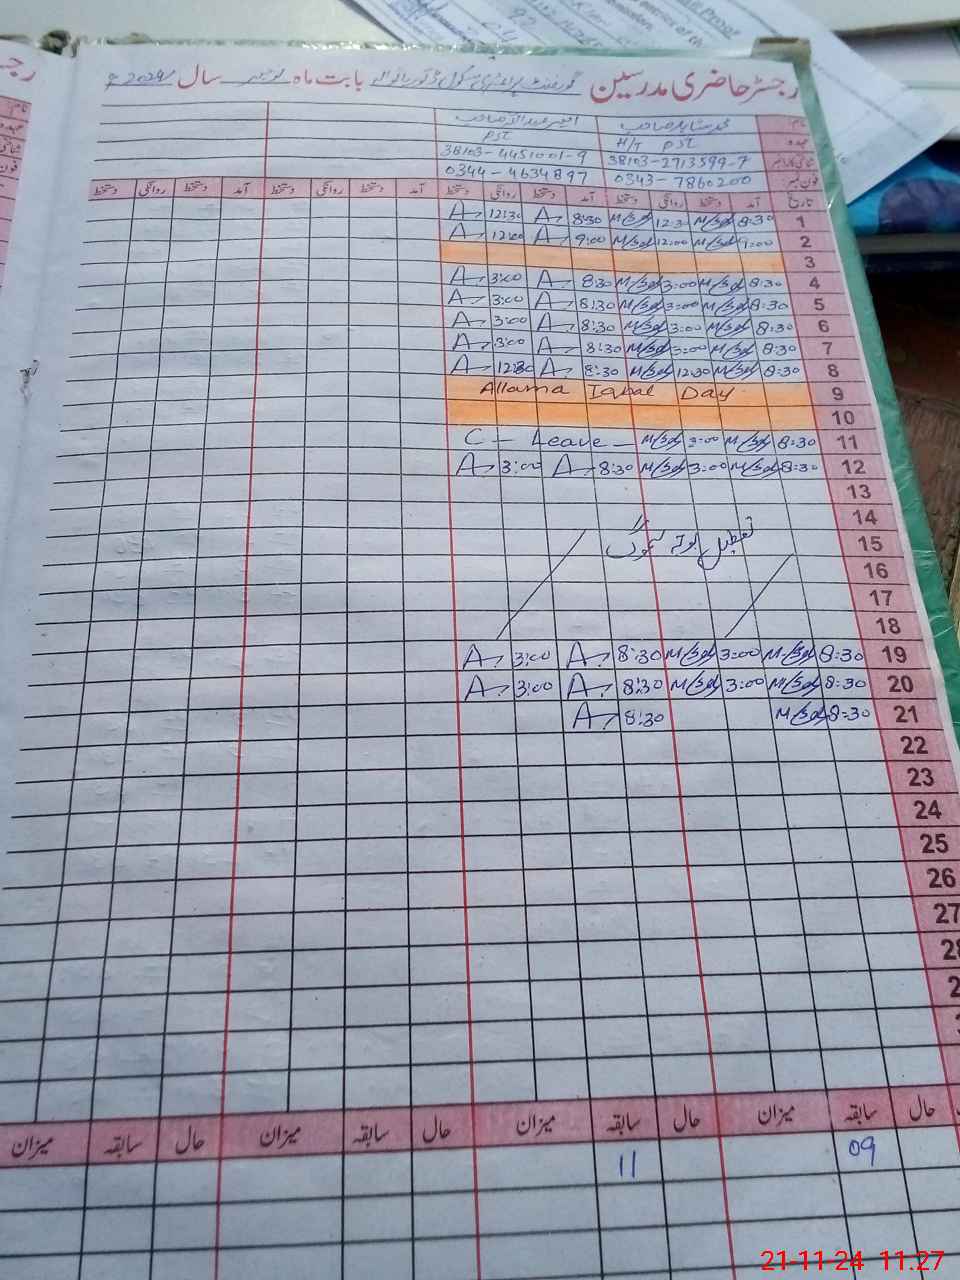 رجسٹر حاضری مدرسین گورنمنٹ پرائمری سکول بابت ماہ نومبر سال 2024ء
نام محمد صاحب امیر عبداللہ صاحب
عہدہ H/T PST PST
38103-2713599-7 38103-4451001-9
فون نمبر 0343-7860200 0344-4634897
تاریخ آمد دستخط روانگی دستخط آمد دستخط روانگی دستخط آمد دستخط روانگی دستخط آمد دستخط روانگی دستخط
1 8:30 M/Sd 12:30 M/Sd 8:30 A 12:30 A
2 9:00 M/Sd 12:00 M/Sd 9:00 A 12:00 A
3
4 8:30 M/Sd 3:00 M/Sd 8:30 A 3:00 A
5 8:30 M/Sd 3:00 M/Sd 8:30 A 3:00 A
6 8:30 M/Sd 3:00 M/Sd 8:30 A 3:00 A
7 8:30 M/Sd 3:00 M/Sd 8:30 A 3:00 A
8 8:30 M/Sd 12:30 M/Sd 8:30 A 12:30 A
9 Allama Iqbal Day
10
11 8:30 M/Sd 3:00 M/Sd C - Leave -
12 8:30 M/Sd 3:00 M/Sd 8:30 A 3:00 A
13
14
15 تعطیل بوجہ سموگ
16
17
18
19 8:30 M/Sd 3:00 M/Sd 8:30 A 3:00 A
20 8:30 M/Sd 3:00 M/Sd 8:30 A 3:00 A
21 8:30 M/Sd 8:30 A
22
23
24
25
26
27
حال سابقہ میزان حال سابقہ میزان حال سابقہ میزان حال سابقہ میزان
09 11
21-11-24 11.27